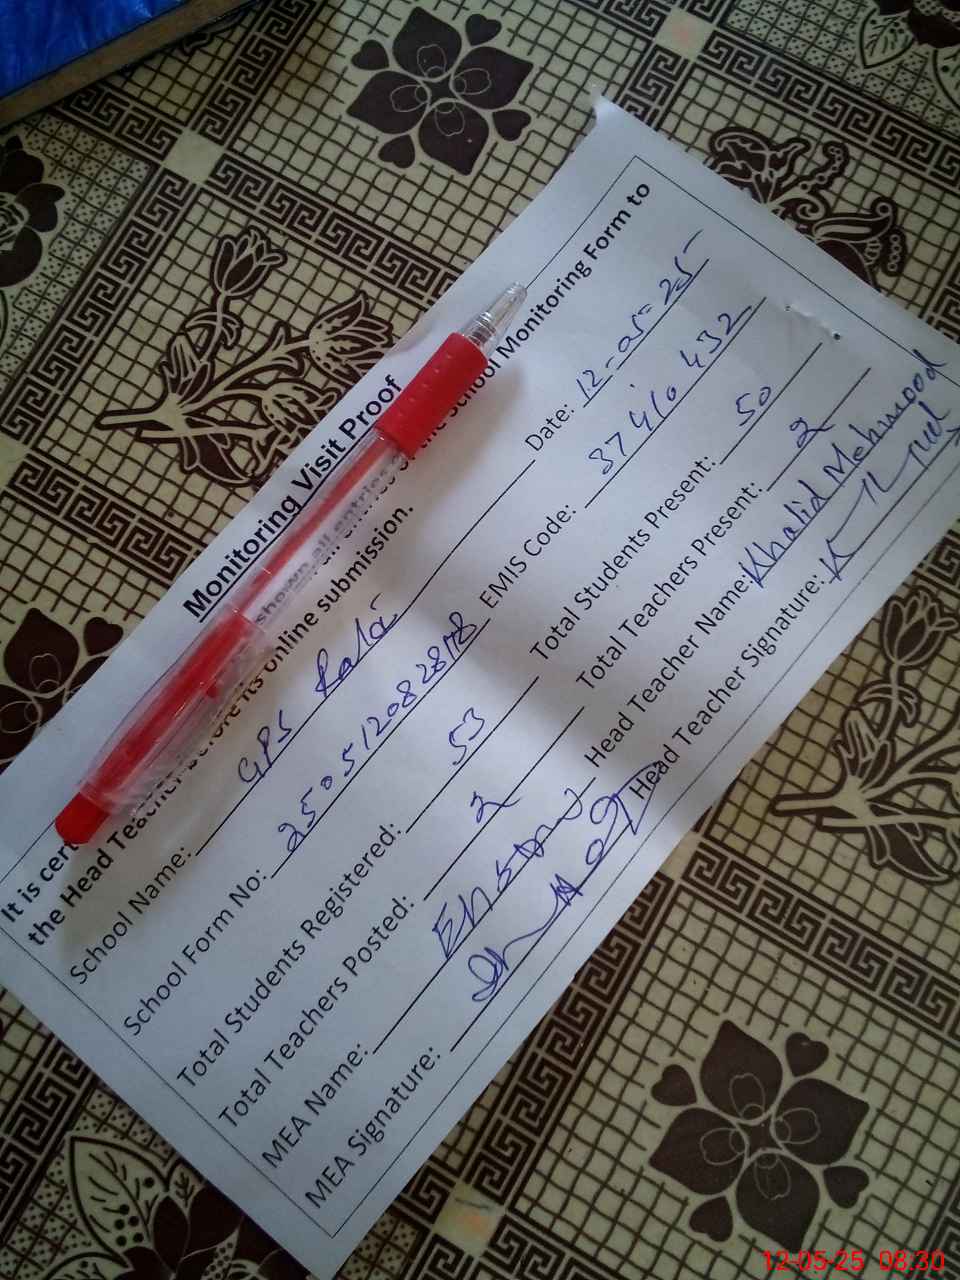 Monitoring Visit Proof
It is cert shown all entries of the School Monitoring Form to
the Head Teacher before its online submission.
School Name: GPS Date: 12-05-25
School Form No: EMIS Code: 37410432
Total Students Registered: 53 Total Students Present: 50
Total Teachers Posted: 2 Total Teachers Present: 2
MEA Name: Head Teacher Name: Khalid Mehmood
MEA Signature: Head Teacher Signature:
12-05-25 08:30